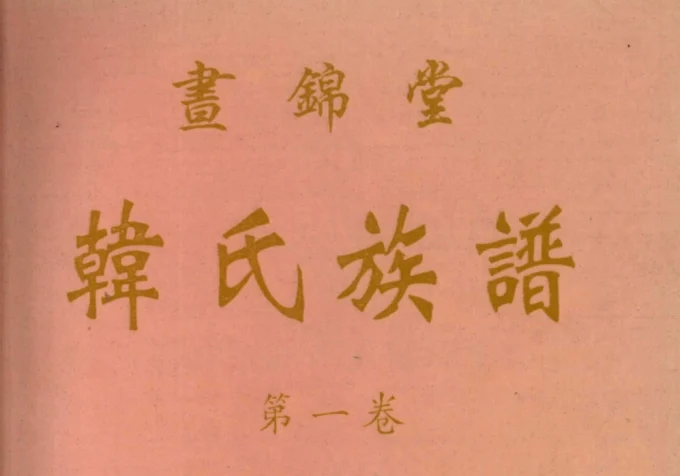 晝錦堂
韓氏族譜
第一卷